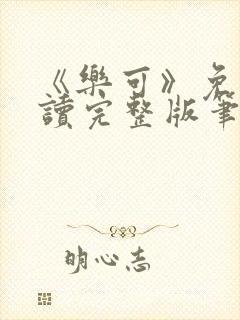 《樂可》免
讀完整版筆
明心志